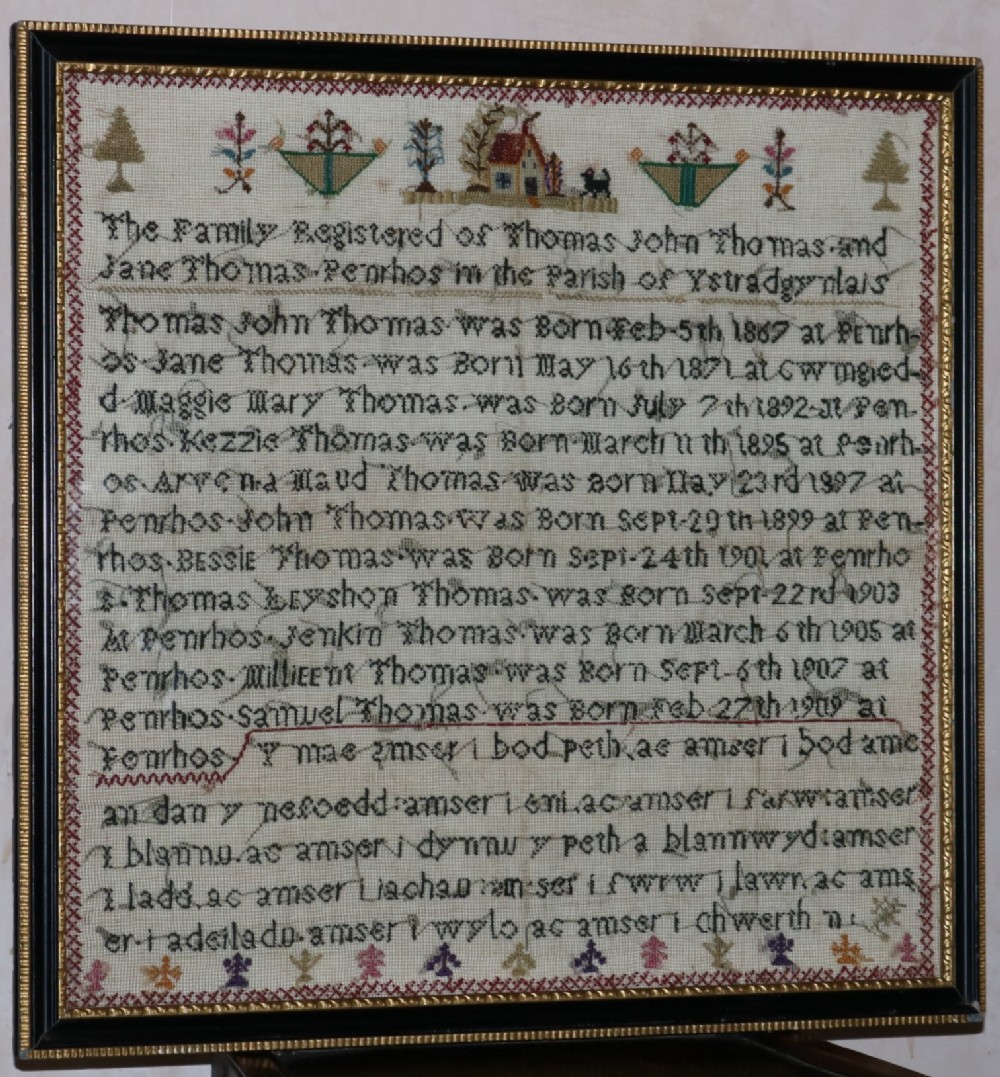 The Family Registered of Thomas John Thomas and
Jane Thomas Penrhos in the Parish of Ystradgynlais
Thomas John Thomas was Born Feb 5th 1867 at Penrh-
os Jane Thomas was Born May 16th 1871 at Cwmgied-
d Maggie Mary Thomas was Born July 7th 1892 at Pen
rhos Kezzie Thomas was Born March 11th 1895 at Penrh-
os Arvena Maud Thomas was Born May 23rd 1897 at
Penrhos John Thomas was Born Sept 29th 1899 at Pen-
rhos BESSIE Thomas was Born Sept 24th 1901 at Penrho
s Thomas LEyshon Thomas was Born Sept 22rd 1903
At Penrhos Jenkin Thomas was Born March 6th 1905 at
Penrhos MilliEEnt Thomas was Born Sept 6th 1907 at
Penrhos Samuel Thomas was Born Feb 27th 1909 at
Penrhos Y mae amser i bod peth ac amser i bod amc
an dan y nefoedd: amser i eni ac amser i farw: amser
I blannu ac amser i dynnu y peth a blannwyd: amser
I ladd ac amser i iachau amser i fwrw i lawr ac ams
er i adeiladu amser i wylo ac amser i chwerthin